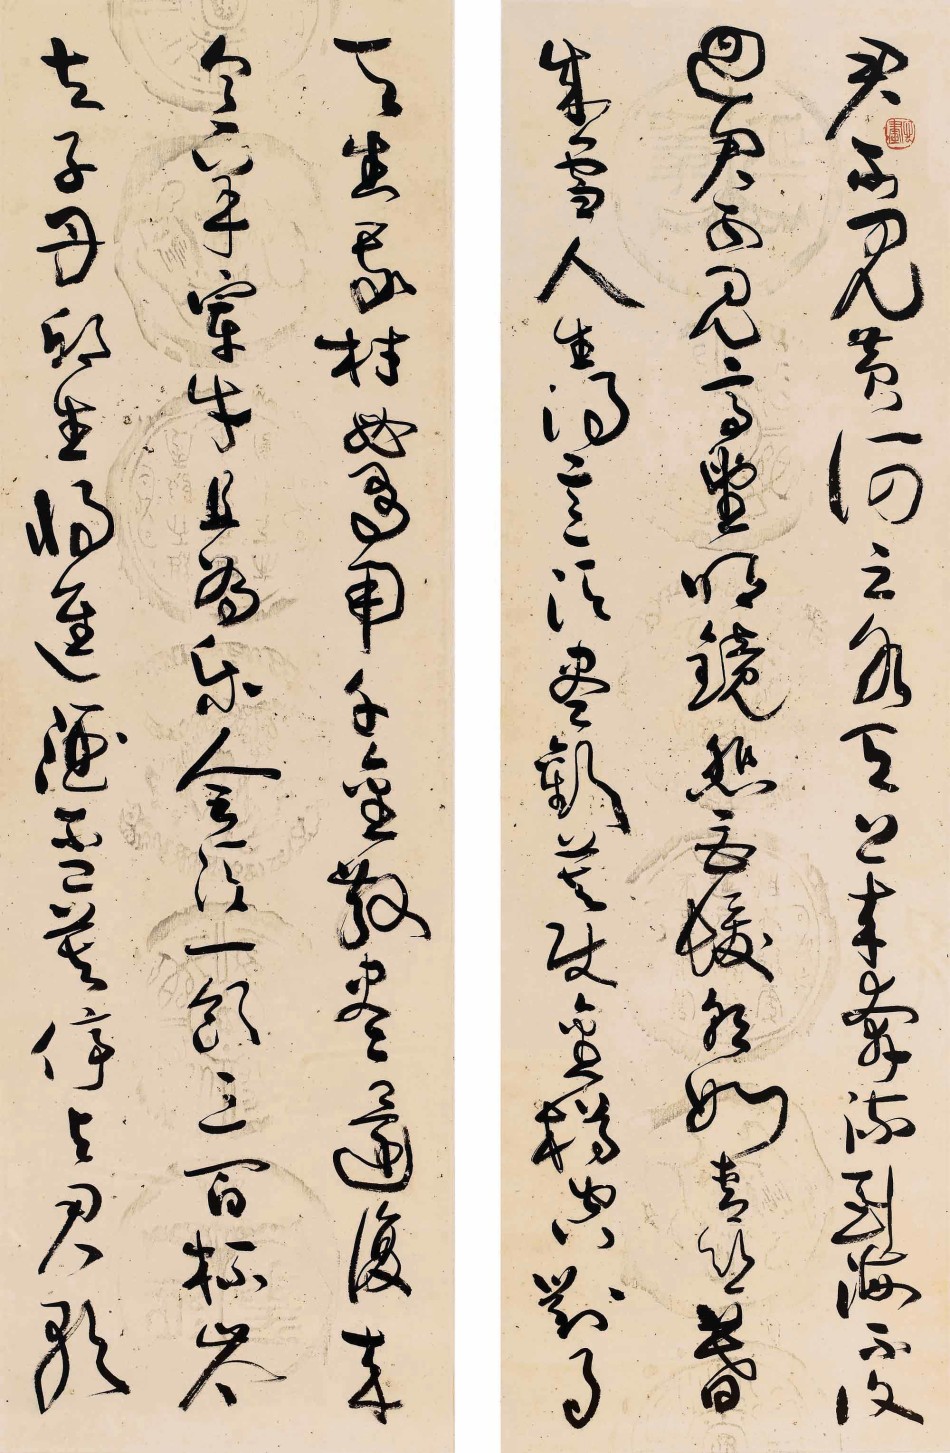 君不見黃河之水天上來奔流到海不復
迴君不見高堂明鏡悲白髮朝如青絲暮
成雪人生得意須盡歡莫使金樽空對月
天生我材必有用千金散盡還復來
烹羊宰牛且為樂會須一飲三百杯岑
夫子丹邱生將進酒盃莫停与君歌